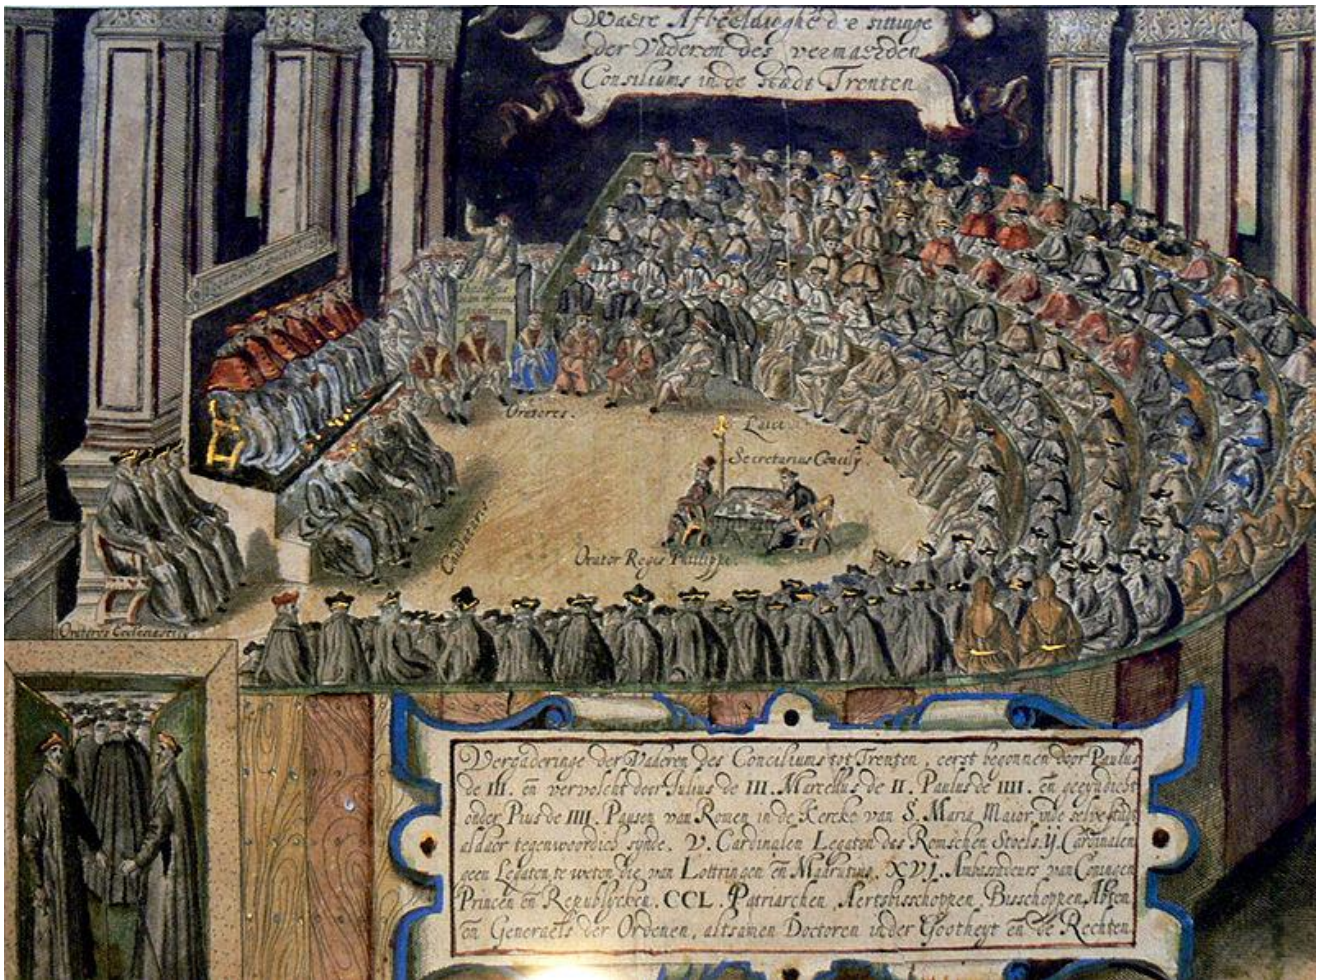 Waere Afbeeldinghe d'e sittinge
der Vaderen des vermaerden
Consiliums in de Stadt Trenten
Oratores.
Laici
Secretarius Concilij.
Orator Regis Philippi.
Oratores Ecclesiastici
Vergaderinge der Vaderen des Conciliums tot Trenten, eerst begonnen door Paulus
de III. en vervolcht door Iulius de III. Marcellus de II. Paulus de IIII. en geeyndicht
onder Pius de IIII. Pausen van Romen in de Kercke van S. Maria Maior, inde selve stadt
aldaer tegenwoordich synde. V. Cardinalen Legaton des Romschen Stoels. ij. Cardinalen
geen Legaten, te weten die van Lottringen en Madrutius. XVJ. Ambassadeurs van Coningen
Princen en Republycken. CCL. Patriarchen, Aertsbisschoppen, Bisschoppen, Abten,
en Generaels der Ordenen, altsamen Doctoren in der Gootheyt en de Rechten.